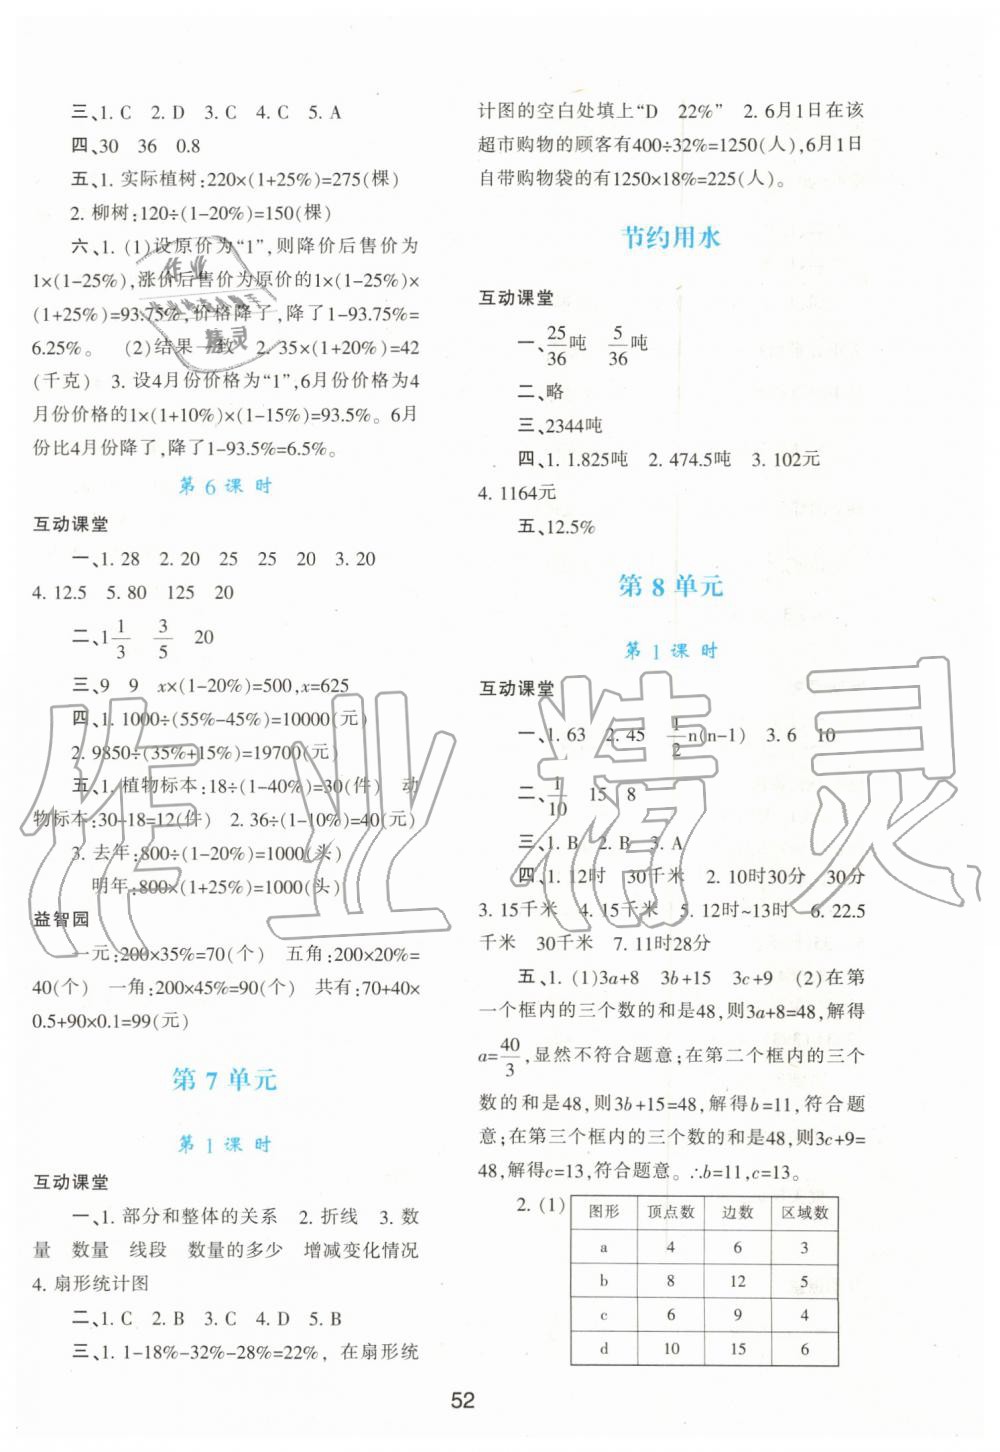 三、1. C 2. D 3. C 4. C 5. A
四、30 36 0.8
五、1. 实际植树:220×(1+25%)=275(棵)
2. 柳树:120÷(1-20%)=150(棵)
六、1. (1)设原价为“1”,则降价后售价为
1×(1-25%),涨价后售价为原价的1×(1-25%)×
(1+25%)=93.75%,价格降了,降了1-93.75%=
6.25%。 (2)结果一致 2. 35×(1+20%)=42
(千克) 3. 设4月份价格为“1”,6月份价格为4
月份价格的1×(1+10%)×(1-15%)=93.5%。6月
份比4月份降了,降了1-93.5%=6.5%。
第 6 课 时
互动课堂
一、1. 28 2. 20 25 25 20 3. 20
4. 12.5 5. 80 125 20
二、1 1/3 3/5 20
三、9 9 x×(1-20%)=500,x=625
四、1. 1000÷(55%-45%)=10000(元)
2. 9850÷(35%+15%)=19700(元)
五、1. 植物标本:18÷(1-40%)=30(件) 动
物标本:30-18=12(件) 2. 36÷(1-10%)=40(元)
3. 去年:800÷(1-20%)=1000(头)
明年:800×(1+25%)=1000(头)
益智园
一元:200×35%=70(个) 五角:200×20%=
40(个) 一角:200×45%=90(个) 共有:70+40×
0.5+90×0.1=99(元)
第 7 单元
第 1 课 时
互动课堂
一、1. 部分和整体的关系 2. 折线 3. 数
量 数量 线段 数量的多少 增减变化情况
4. 扇形统计图
二、1. C 2. B 3. C 4. D 5. B
三、1. 1-18%-32%-28%=22%, 在扇形统
计图的空白处填上“D 22%” 2. 6月1日在该
超市购物的顾客有400÷32%=1250(人),6月1日
自带购物袋的有1250×18%=225(人)。
节约用水
互动课堂
一、25/36吨 5/36吨
二、略
三、2344吨
四、1. 1.825吨 2. 474.5吨 3. 102元
4. 1164元
五、12.5%
第 8 单元
第 1 课 时
互动课堂
一、1. 63 2. 45 1/2 n(n-1) 3. 6 10
二、1/10 15 8
三、1. B 2. B 3. A
四、1. 12时 30千米 2. 10时30分 30分
3. 15千米 4. 15千米 5. 12时~13时 6. 22.5
千米 30千米 7. 11时28分
五、1. (1)3a+8 3b+15 3c+9 (2)在第
一个框内的三个数的和是48,则3a+8=48,解得
a=40/3,显然不符合题意;在第二个框内的三个
数的和是48,则3b+15=48,解得b=11,符合题
意;在第三个框内的三个数的和是48,则3c+9=
48,解得c=13,符合题意。∴b=11,c=13。
2. (1)
图形 顶点数 边数 区域数
a 4 6 3
b 8 12 5
c 6 9 4
d 10 15 6
52
作业精灵
作业
精灵